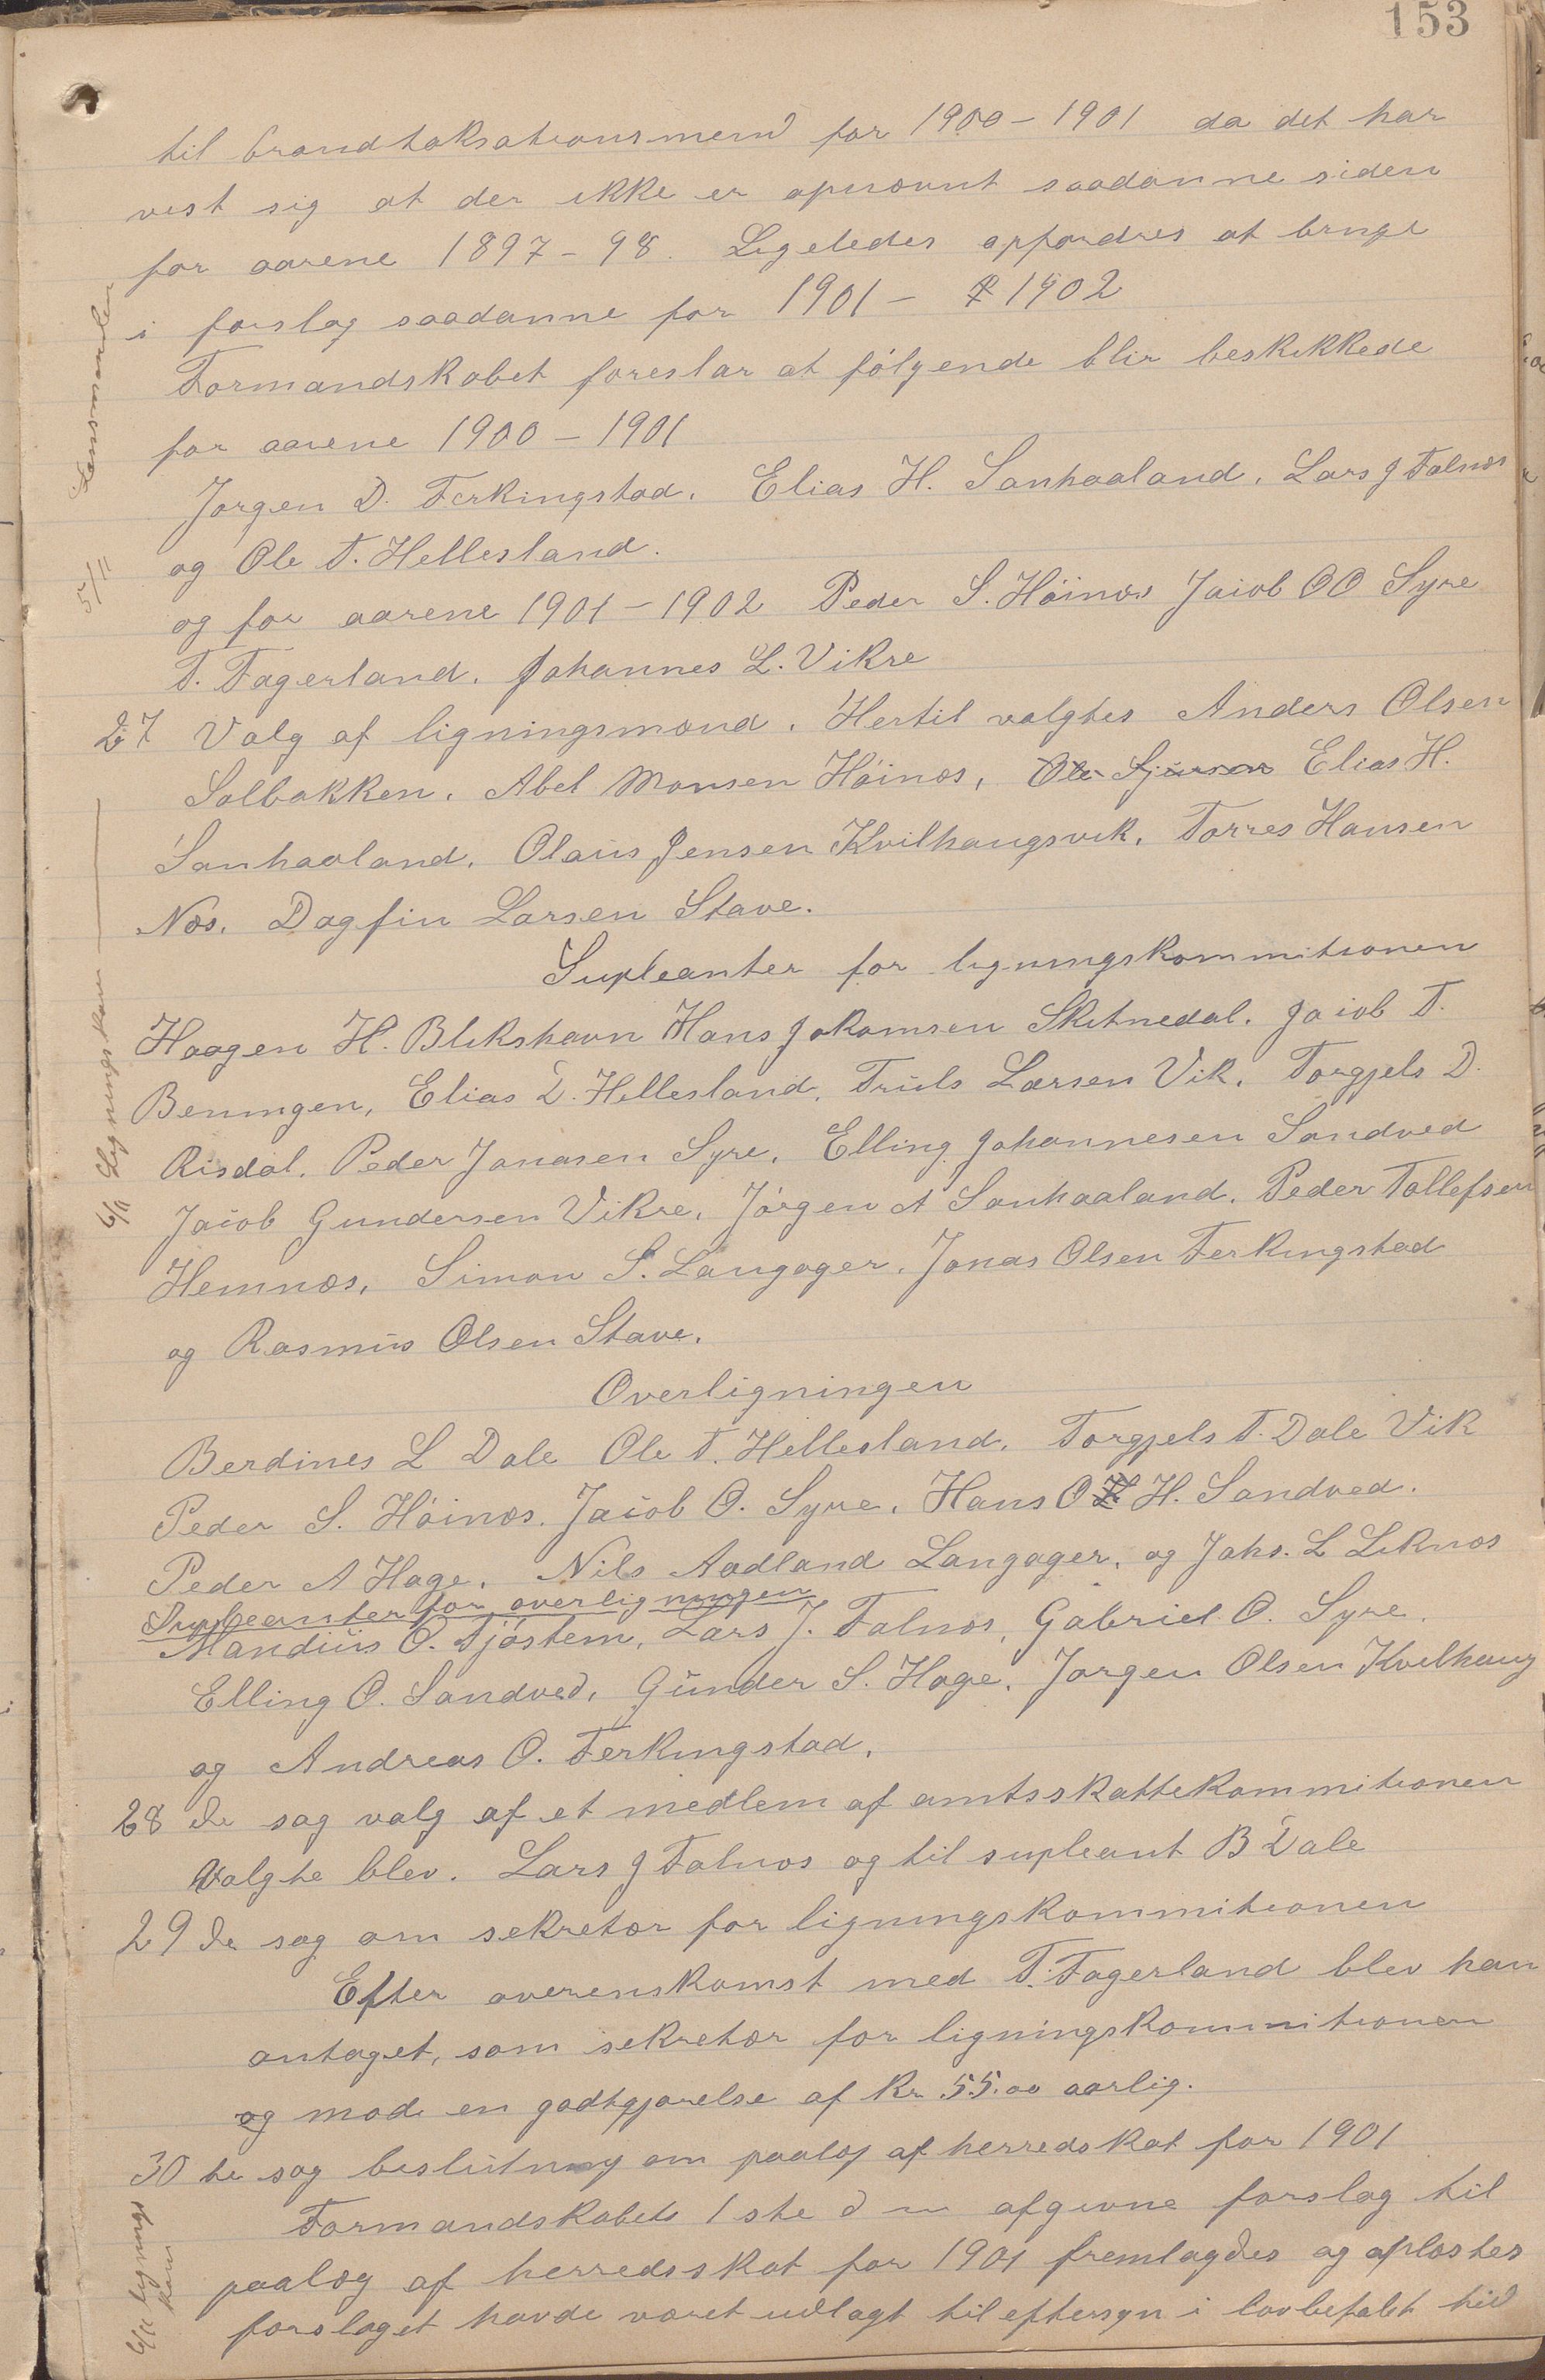 153
til brandtaksationsmend for 1900-1901 da det har
vist sig at der ikke er opnævnt saadanne siden
for aarene 1897-98. Ligeledes opfordres at bringe
i forslag saadanne for 1901 - 1902
Formandskabet foreslar at følgende blir beskikkede
for aarene 1900-1901
Jørgen D. Ferkingstad. Elias H. Sanhaaland. Lars J Falnæs
og Ole T. Hellesland.
og for aarene 1901-1902 Peder S. Høinæs Jacob OO Syre
T. Fagerland. Johannes L. Vikre
27 Valg af ligningsmænd. Hertil valgtes Anders Olsen
Solbakken. Abel Monsen Høinæs, Ole Sjursen Elias H.
Sanhaaland. Olaus Jensen Kvilhaugsvik. Torres Hansen
Næs. Dagfin Larsen Stave.
Supleanter for ligningskommitionen
Haagen H. Blikshavn Hans Jokomsen Skitnedal. Jacob T.
Beningen, Elias D. Hellesland, Truls Larsen Vik. Torgjels D.
Risdal. Peder Jonasen Syre. Elling Johannesen Sandved
Jacob Gundersen Vikre. Jørgen A Sanhaaland. Peder Tollefsen
Hemnæs. Simon S. Langager. Jonas Olsen Ferkingstad
og Rasmus Olsen Stave.
Overligningen
Berdines L Dale Ole T. Hellesland. Torgjels T. Dale Vik
Peder S. Høinæs. Jacob O. Syre. Hans O H. Sandved.
Peder A Hage. Nils Aadland Langager. og Johs. L Liknæs
Supleanter for overligningen
Mandius O. Tjøstem, Lars J. Falnæs, Gabriel O. Syre.
Elling O. Sandved, Gunder S. Hage. Jørgen Olsen Kvilhaug
og Andreas O. Ferkingstad.
28 de sag valg af et medlem af amtsskattekommitionen
Valgte blev. Lars J Falnæs og til supleant B Dale
29 de sag om sekretær for ligningskommitionen
Efter overenskomst med T. Fagerland blev han
antaget, som sekretær for ligningskommitionen
og mod en godtgjørelse af kr. 55.00 aarlig.
30 te sag beslutning om paalæg af herredskat for 1901
Formandskabets 1ste d m afgivne forslag til
paalæg af herredsskat for 1901 fremlagdes og oplæstes
forslaget havde været udlagt til eftersyn i lovbefalt tid
5/11 Lensmanden
6/11 Lignings kom
6/11 Lignings
kom